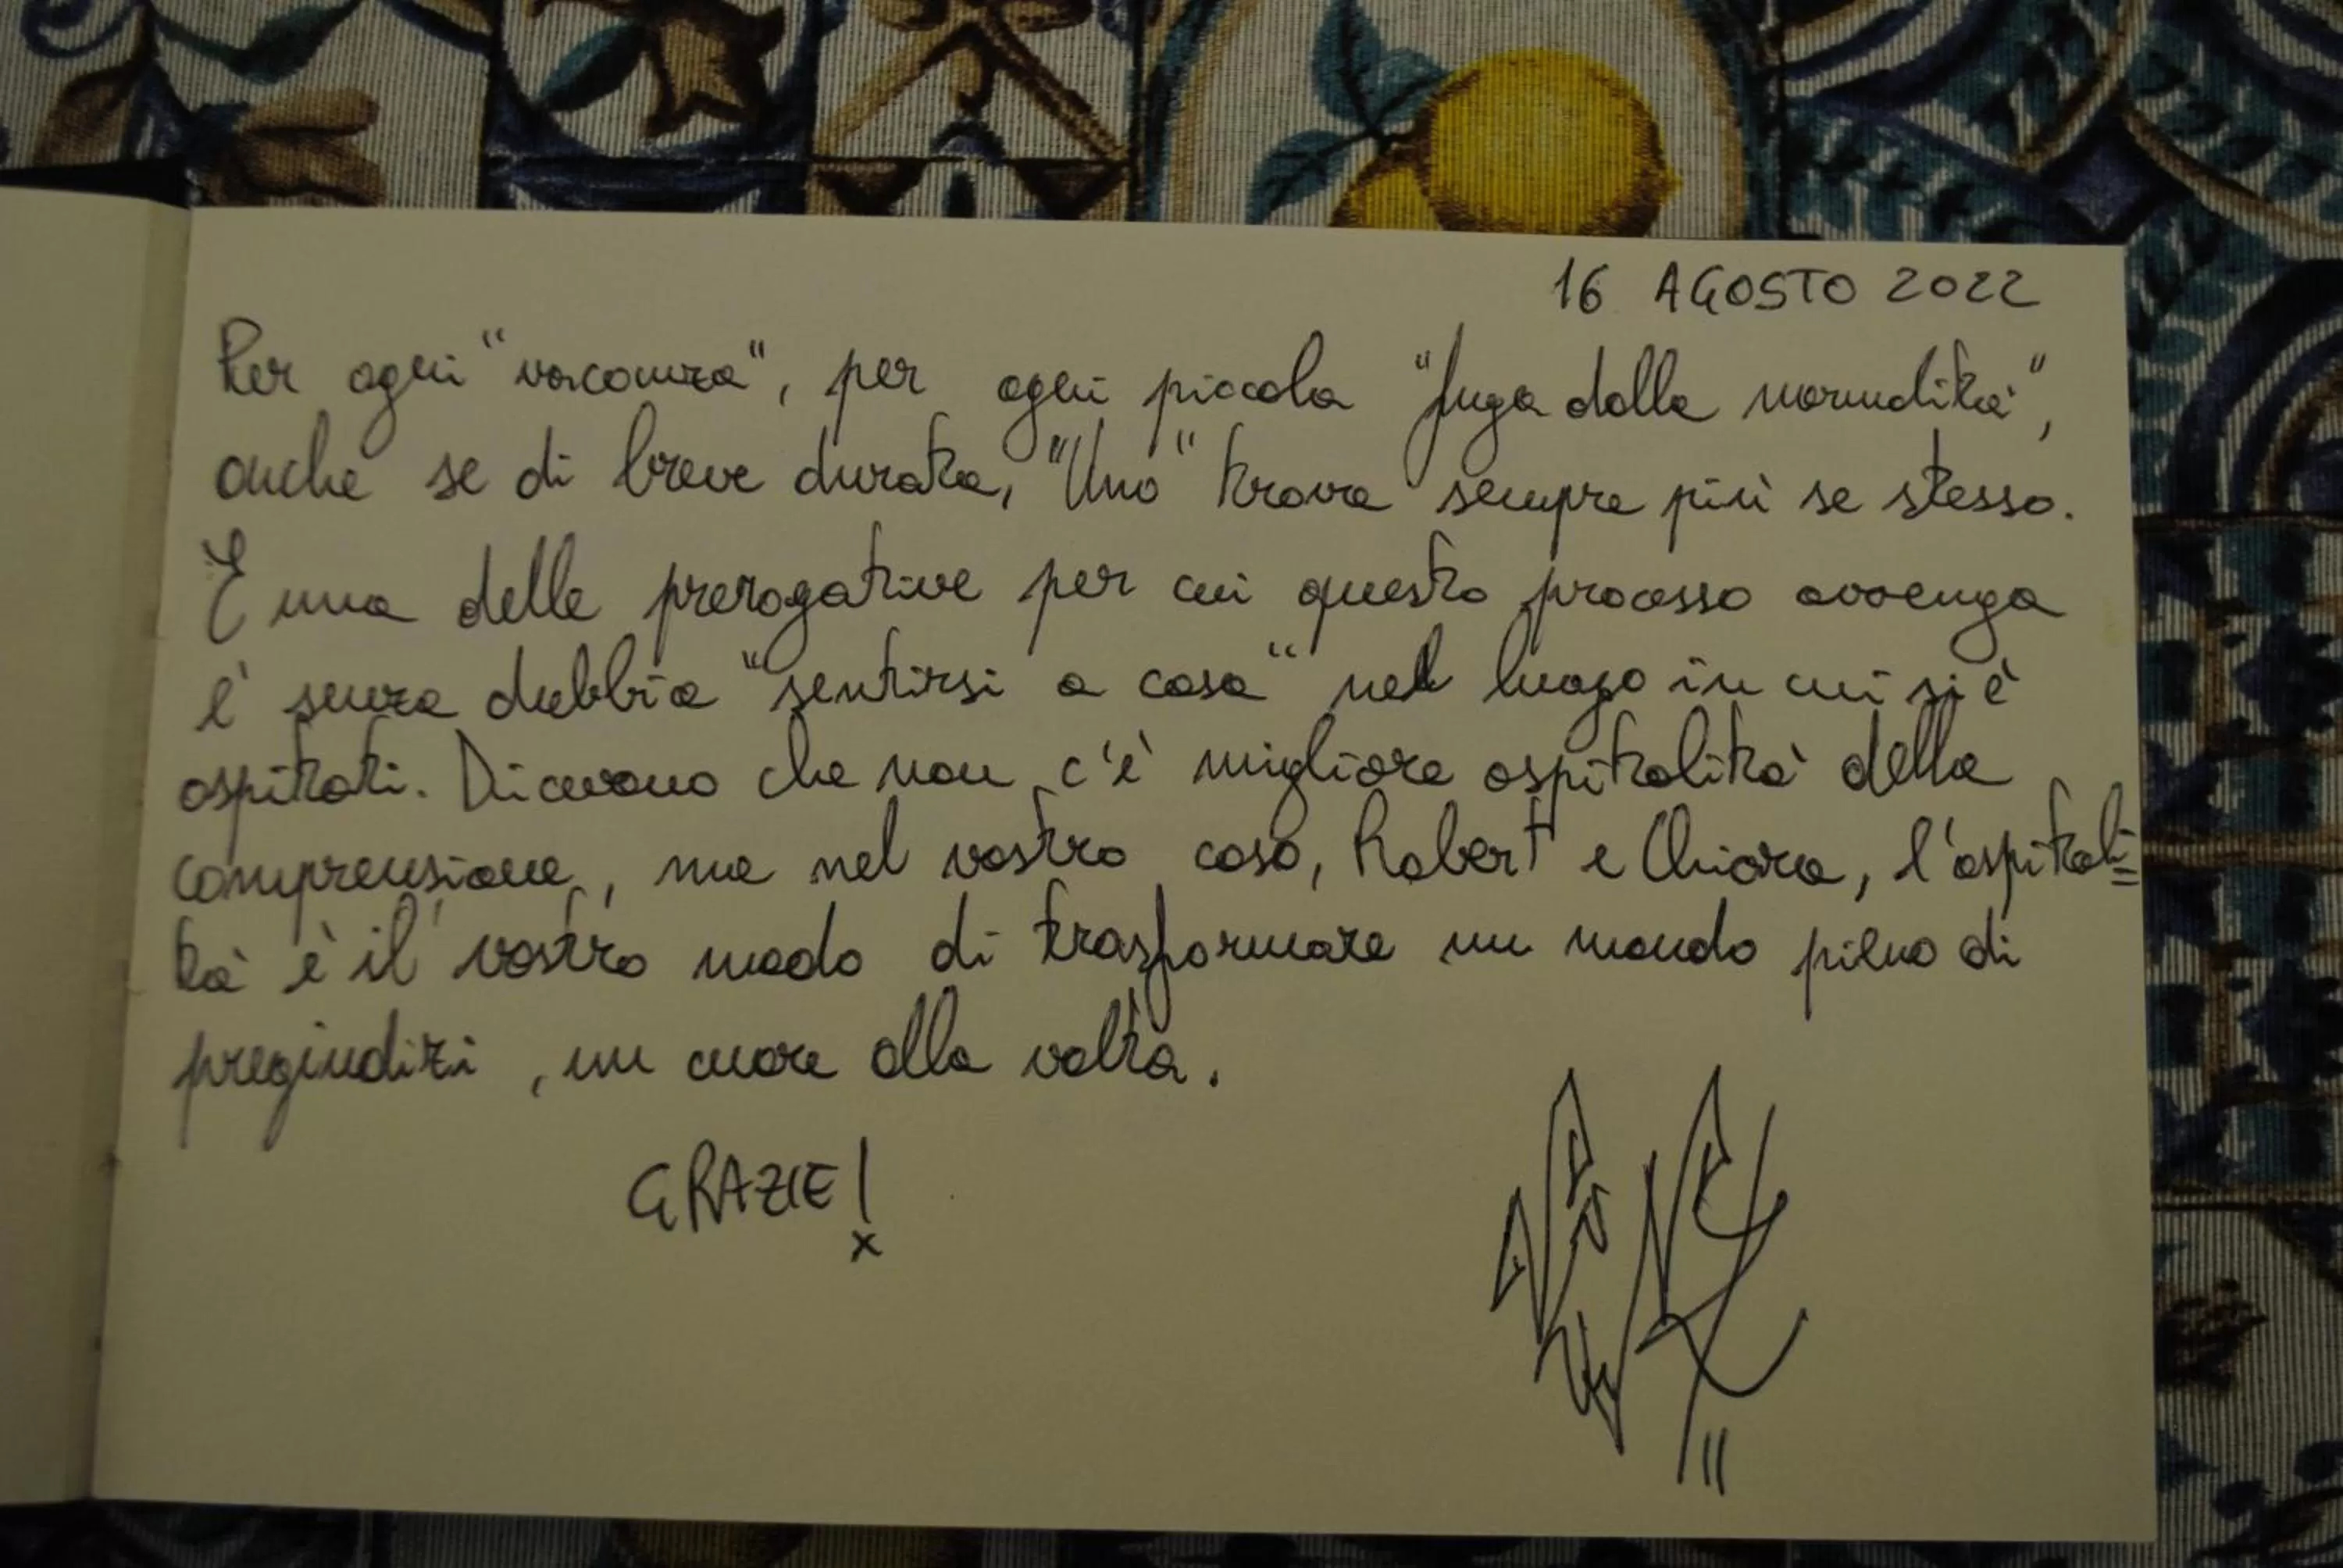 16 AGOSTO 2022
Per ogni "vacanza", per ogni piccola "fuga dalla normalità",
anche se di breve durata, "Uno" trova sempre più se stesso.
E una delle prerogative per cui questo processo avvenga
è senza dubbio "sentirsi a casa" nel luogo in cui si è
ospitati. Dicevano che non c'è migliore ospitalità della
comprensione, ma nel vostro caso, Robert e Chiara, l'ospitali=
tà è il vostro modo di trasformare un mondo pieno di
pregiudizi, un cuore alla volta.
GRAZIE!
x